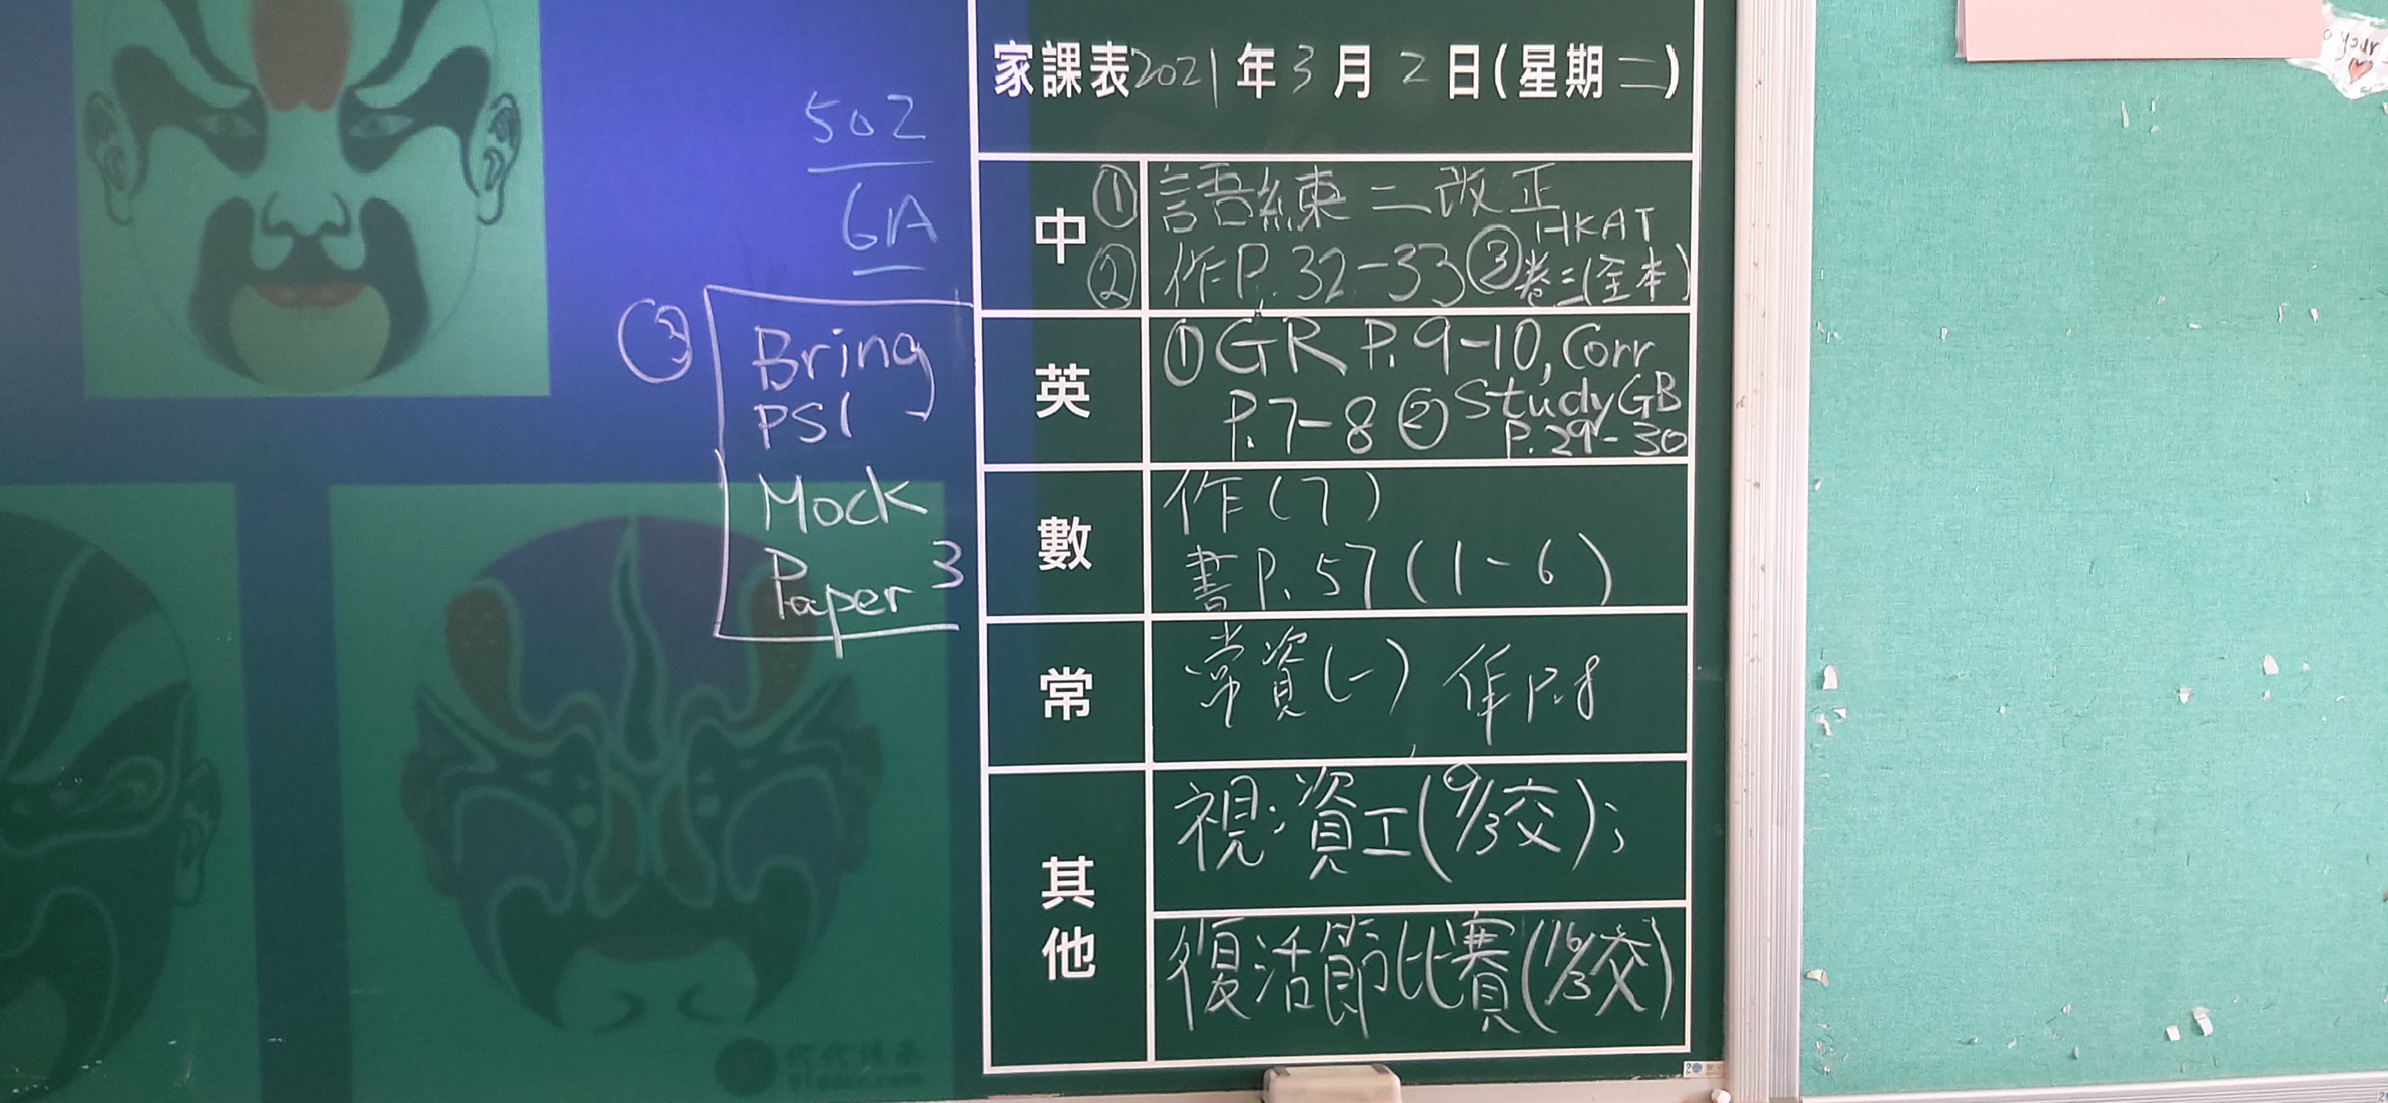 家課表2021年3月2日(星期二)
502
6A
中
① 語練二改正
② 作P.32-33 ③ HKAT
卷三(全本)
英
① GR P.9-10, Corr
P.7-8 ② Study GB
P.29-30
③ Bring
PS1
Mock
Paper 3
數
作(7)
書P.57(1-6)
常
常資(一) 作P.8
其他
視:資工(9/3交);
復活節比賽(16/3交)
your